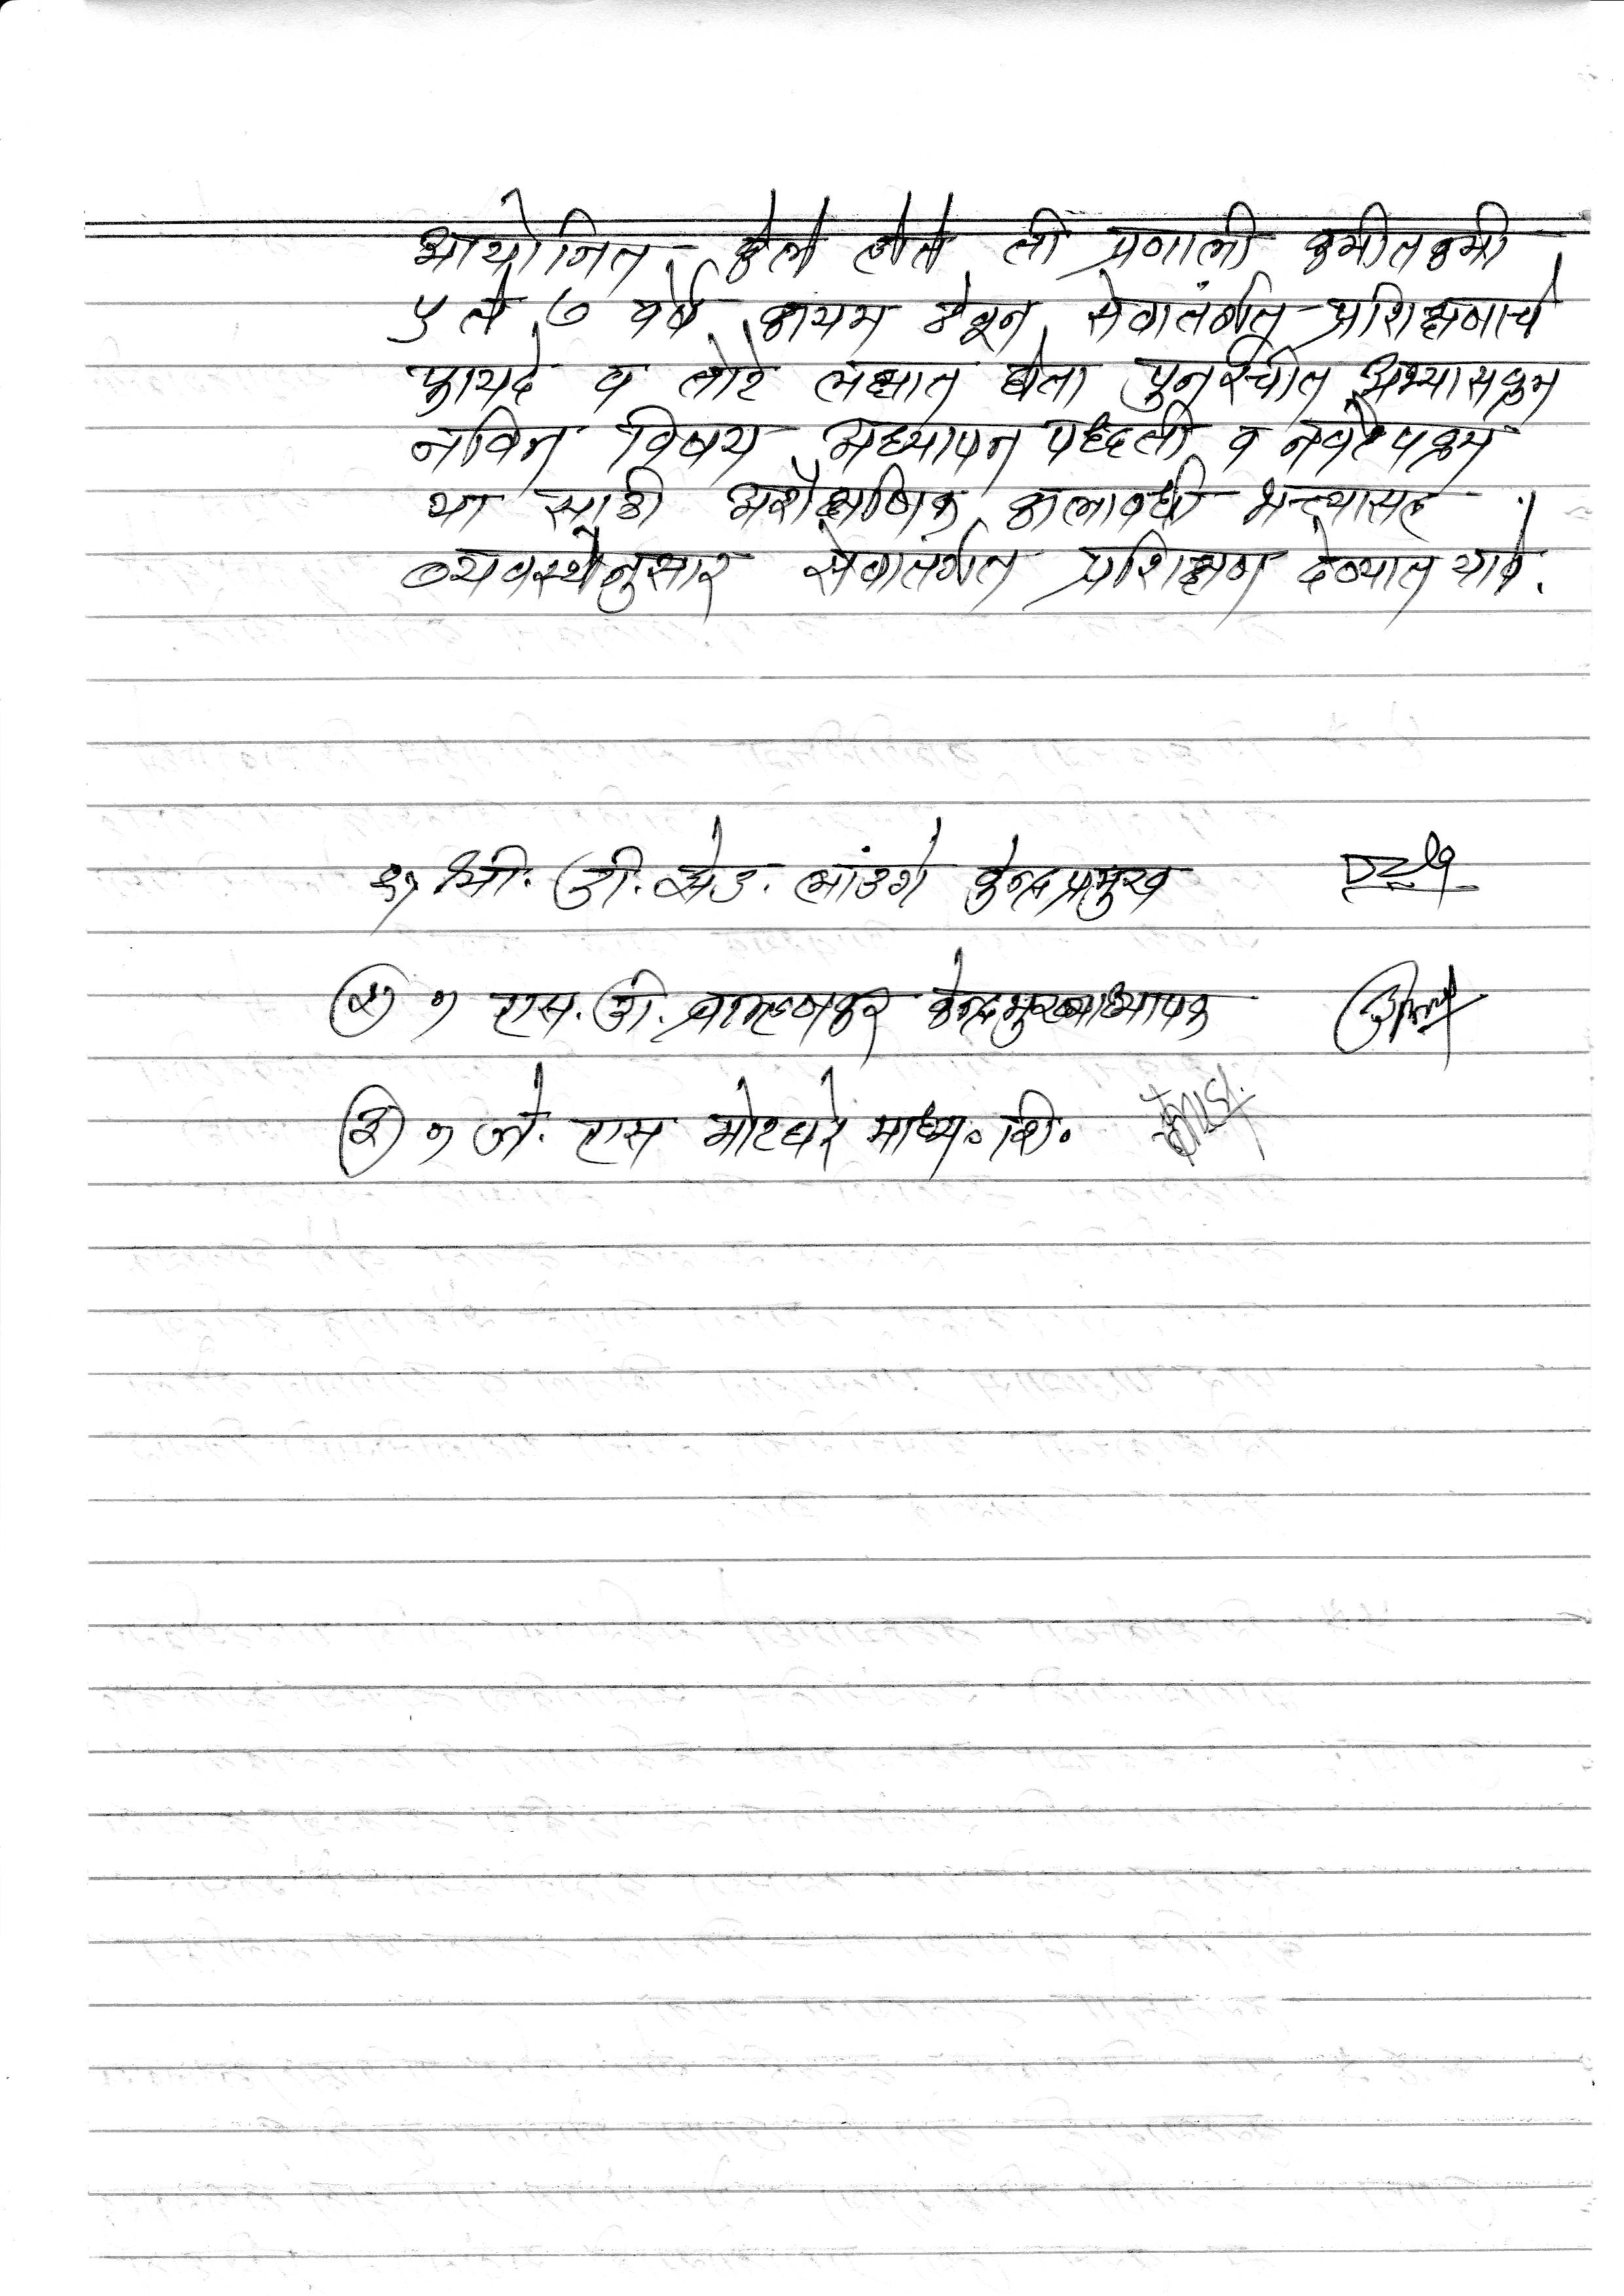 आयोजित केले होते ती प्रणाली कमीतकमी
५ ते ७ वर्षे कायम ठेवून सेवातंर्गत प्रशिक्षणाचे
फायदे व तोटे लक्षात घेता पुनर्रचीत अभ्यासक्रम
नविन विषय अध्यापन पध्दती व नवोपक्रम
या साठी अशैक्षणिक कालावधी भत्यासह
व्यवस्थेनुसार सेवातंर्गत प्रशिक्षण देण्यात यावे.
१) श्री. डी. झेड. लांडगे केन्द्रप्रमुख
२) " एस. डी. ब्राम्हणकर केन्द्रमुख्याध्यापक
३) " जे. एस मोटघरे माध्य० शि०